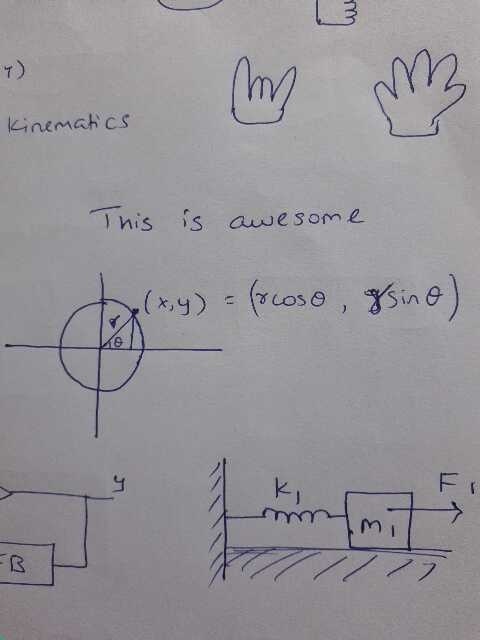 Y)
Kinematics
This is awesome
(x,y) = (rcosθ , rsinθ)
r
θ
y
K1
F1
m1
FB